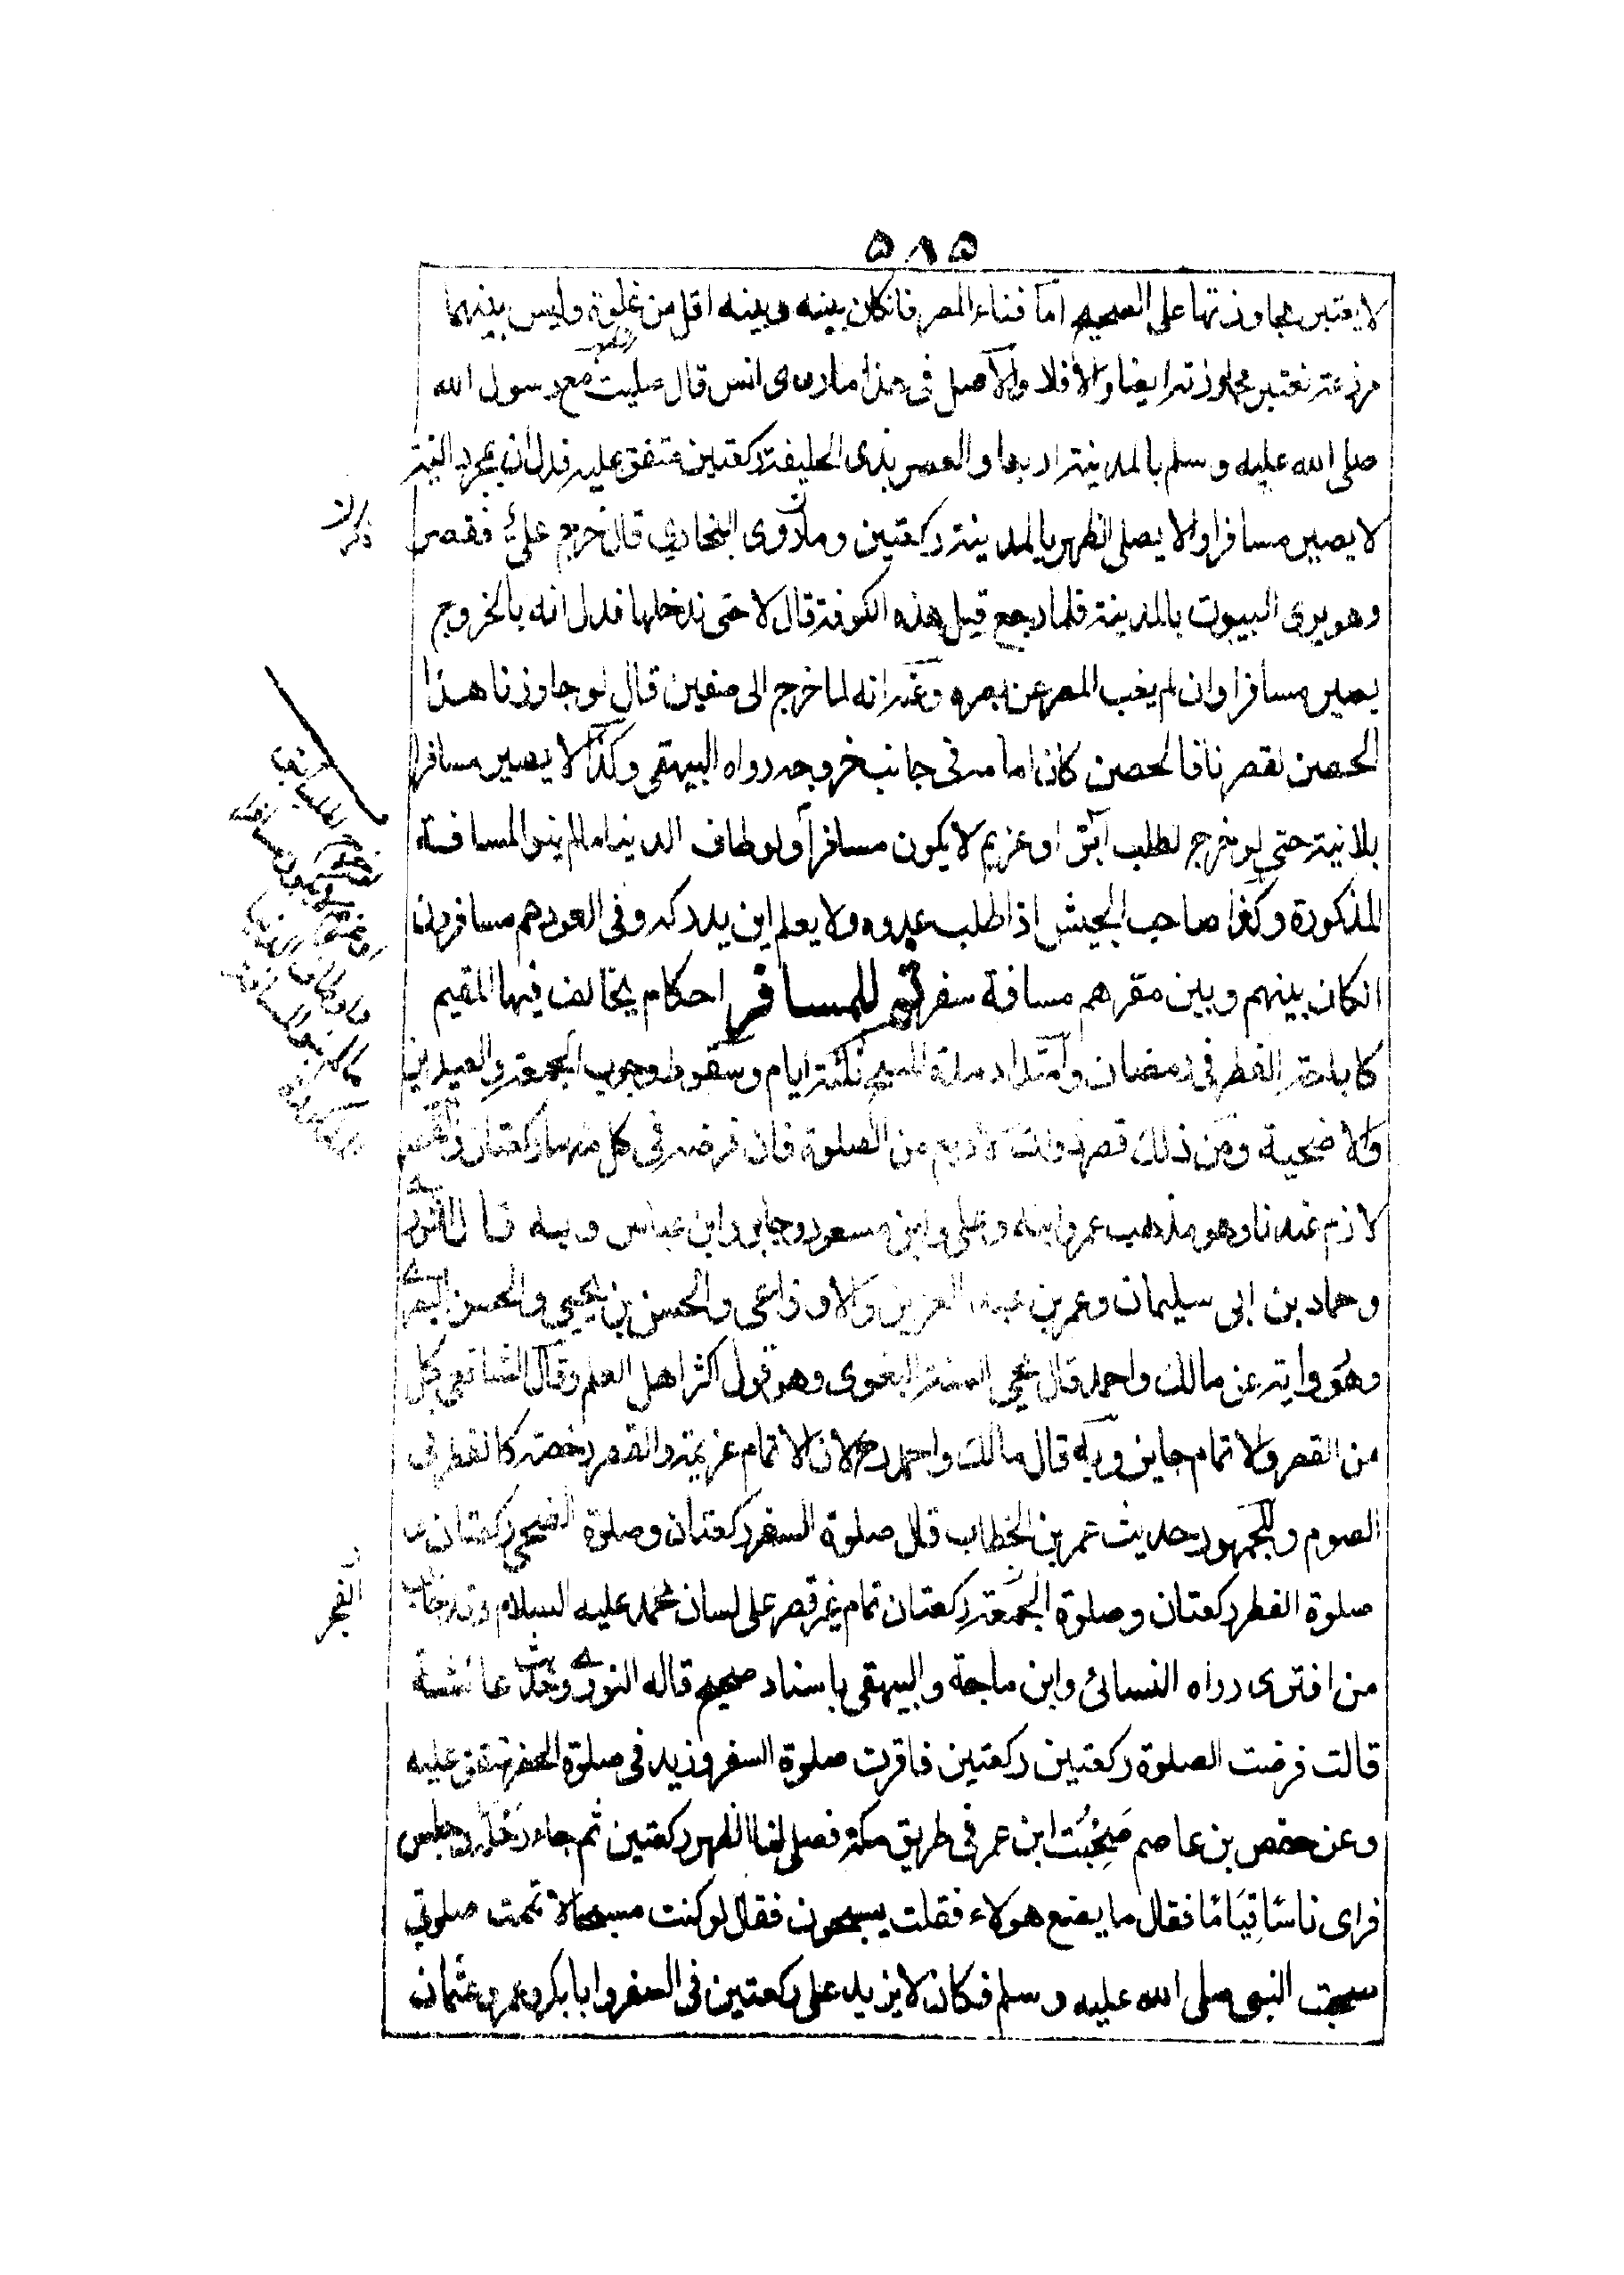 ۵۸۵
لا يعتبر مجاوزتها على الصحيح اما فناء المصر فانكان بينه وبينه اقل من غلوة وليس بينهما
مزرعة تعتبر مجاوزته ايضا والا فلا والاصل فى هذا ماروى انس قال صليت مع رسول الله
صلى الله عليه وسلم بالمدينة اربعا والعصر بذى الحليفة ركعتين متفق عليه فدل ان بمجرد النية
لا يصير مسافرا والا يصلى الظهر بالمدينة ركعتين وما روى البخاري قال خرج على فقصر
وهو يرى البيوت بالمدينة فلما رجع قيل هذه الكوفة قال لا حتى ندخلها فدل انه بالخروج
يصير مسافرا وان لم يغب المصر عن بصره وعنه انه لما خرج الى صفين قال لو جاوزنا هذا
الحصن لقصرنا فالحصن كان امامه فى جانب خروجه رواه البيهقى وكذا لا يصير مسافرا
بلا نية حتى لو خرج لطلب آبق او غريم لا يكون مسافرا ولو طاف الدنيا مالم ينو المسافة
المذكورة وكذا صاحب الجيش اذا طلب عدوه ولا يعلم اين يدركه وفى العود هم مسافرون
انكان بينهم وبين مقرهم مسافة سفر ثم للمسافر احكام يخالف فيها المقيم
كاباحة الفطر فى رمضان وامتداد مدة المسح ثلثة ايام وسقوط وجوب الجمعة والعيدين
والاضحية ومن ذلك قصر ذوات الاربع من الصلوة فان فرضه فى كل منها ركعتان والقصر
لازم عندنا وهو مذهب عمر وابنه وعلى وابن مسعود وجابر وابن عباس وبه قال الثورى
وحماد بن ابى سليمان وعمر بن عبد العزيز والاوزاعى والحسن بن يحيى والحسن البصرى
وهو رواية عن مالك واحمد قال محى السنة البغوى وهو قول اكثر اهل العلم وقال الشافعى كل
من القصر والاتمام جايز وبه قال مالك واحمد رح لان الاتمام عزيمة والقصر رخصة كالفطر فى
الصوم وللجمهور حديث عمر بن الخطاب قال صلوة السفر ركعتان وصلوة الضحى ركعتان و
صلوة الفطر ركعتان وصلوة الجمعة ركعتان تمام غير قصر على لسان محمد عليه السلام وقد خاب
من افترى رواه النسائى وابن ماجة والبيهقى باسناد صحيح قاله النووى وحديث عائشة
قالت فرضت الصلوة ركعتين ركعتين فاقرت صلوة السفر وزيد فى صلوة الحضر متفق عليه
وعن حفص بن عاصم صَحِبْتُ ابن عمر فى طريق مكة فصلى لنا الظهر ركعتين ثم جاء رحله وجلس
فراى ناسًا قِيَامًا فقال ما يصنع هولاء فقلت يسبحون فقال لو كنت مسبحا لاتممت صلوتى
صحبت النبى صلى الله عليه وسلم فكان لا يزيد على ركعتين فى السفر وابا بكر وعمر وعثمان
الفجر